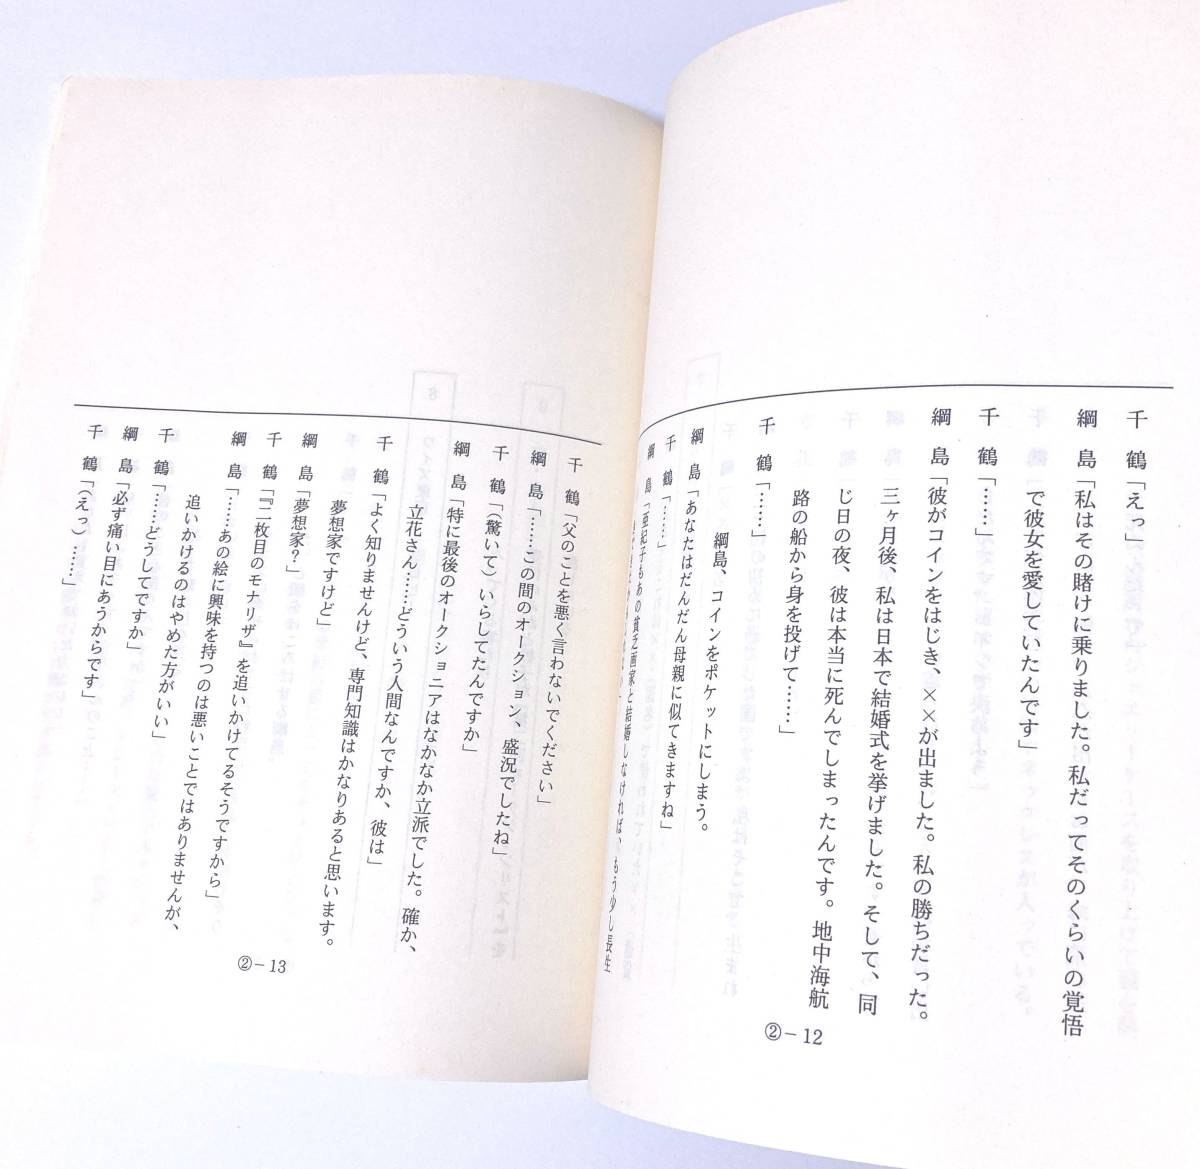 千鶴「えっ」
綱島「私はその賭けに乗りました。私だってそのくらいの覚悟
で彼女を愛していたんです」
千鶴「……」
綱島「彼がコインをはじき、××が出ました。私の勝ちだった。
三ヶ月後、私は日本で結婚式を挙げました。そして、同
じ日の夜、彼は本当に死んでしまったんです。地中海航
路の船から身を投げて……」
千鶴「……」
綱島、コインをポケットにしまう。
綱島「あなたはだんだん母親に似てきますね」
千鶴「……」
綱島「亜紀子もあの貧乏画家と結婚しなければ、もう少し長生
②－12
千鶴「父のことを悪く言わないでください」
綱島「……この間のオークション、盛況でしたね」
千鶴「（驚いて）いらしてたんですか」
綱島「特に最後のオークショニアはなかなか立派でした。確か、
立花さん……どういう人間なんですか、彼は」
千鶴「よく知りませんけど、専門知識はかなりあると思います。
夢想家ですけど」
綱島「夢想家？」
千鶴「『二枚目のモナリザ』を追いかけてるそうですから」
綱島「……あの絵に興味を持つのは悪いことではありませんが、
追いかけるのはやめた方がいい」
千鶴「……どうしてですか」
綱島「必ず痛い目にあうからです」
千鶴「（えっ）……」
②－13